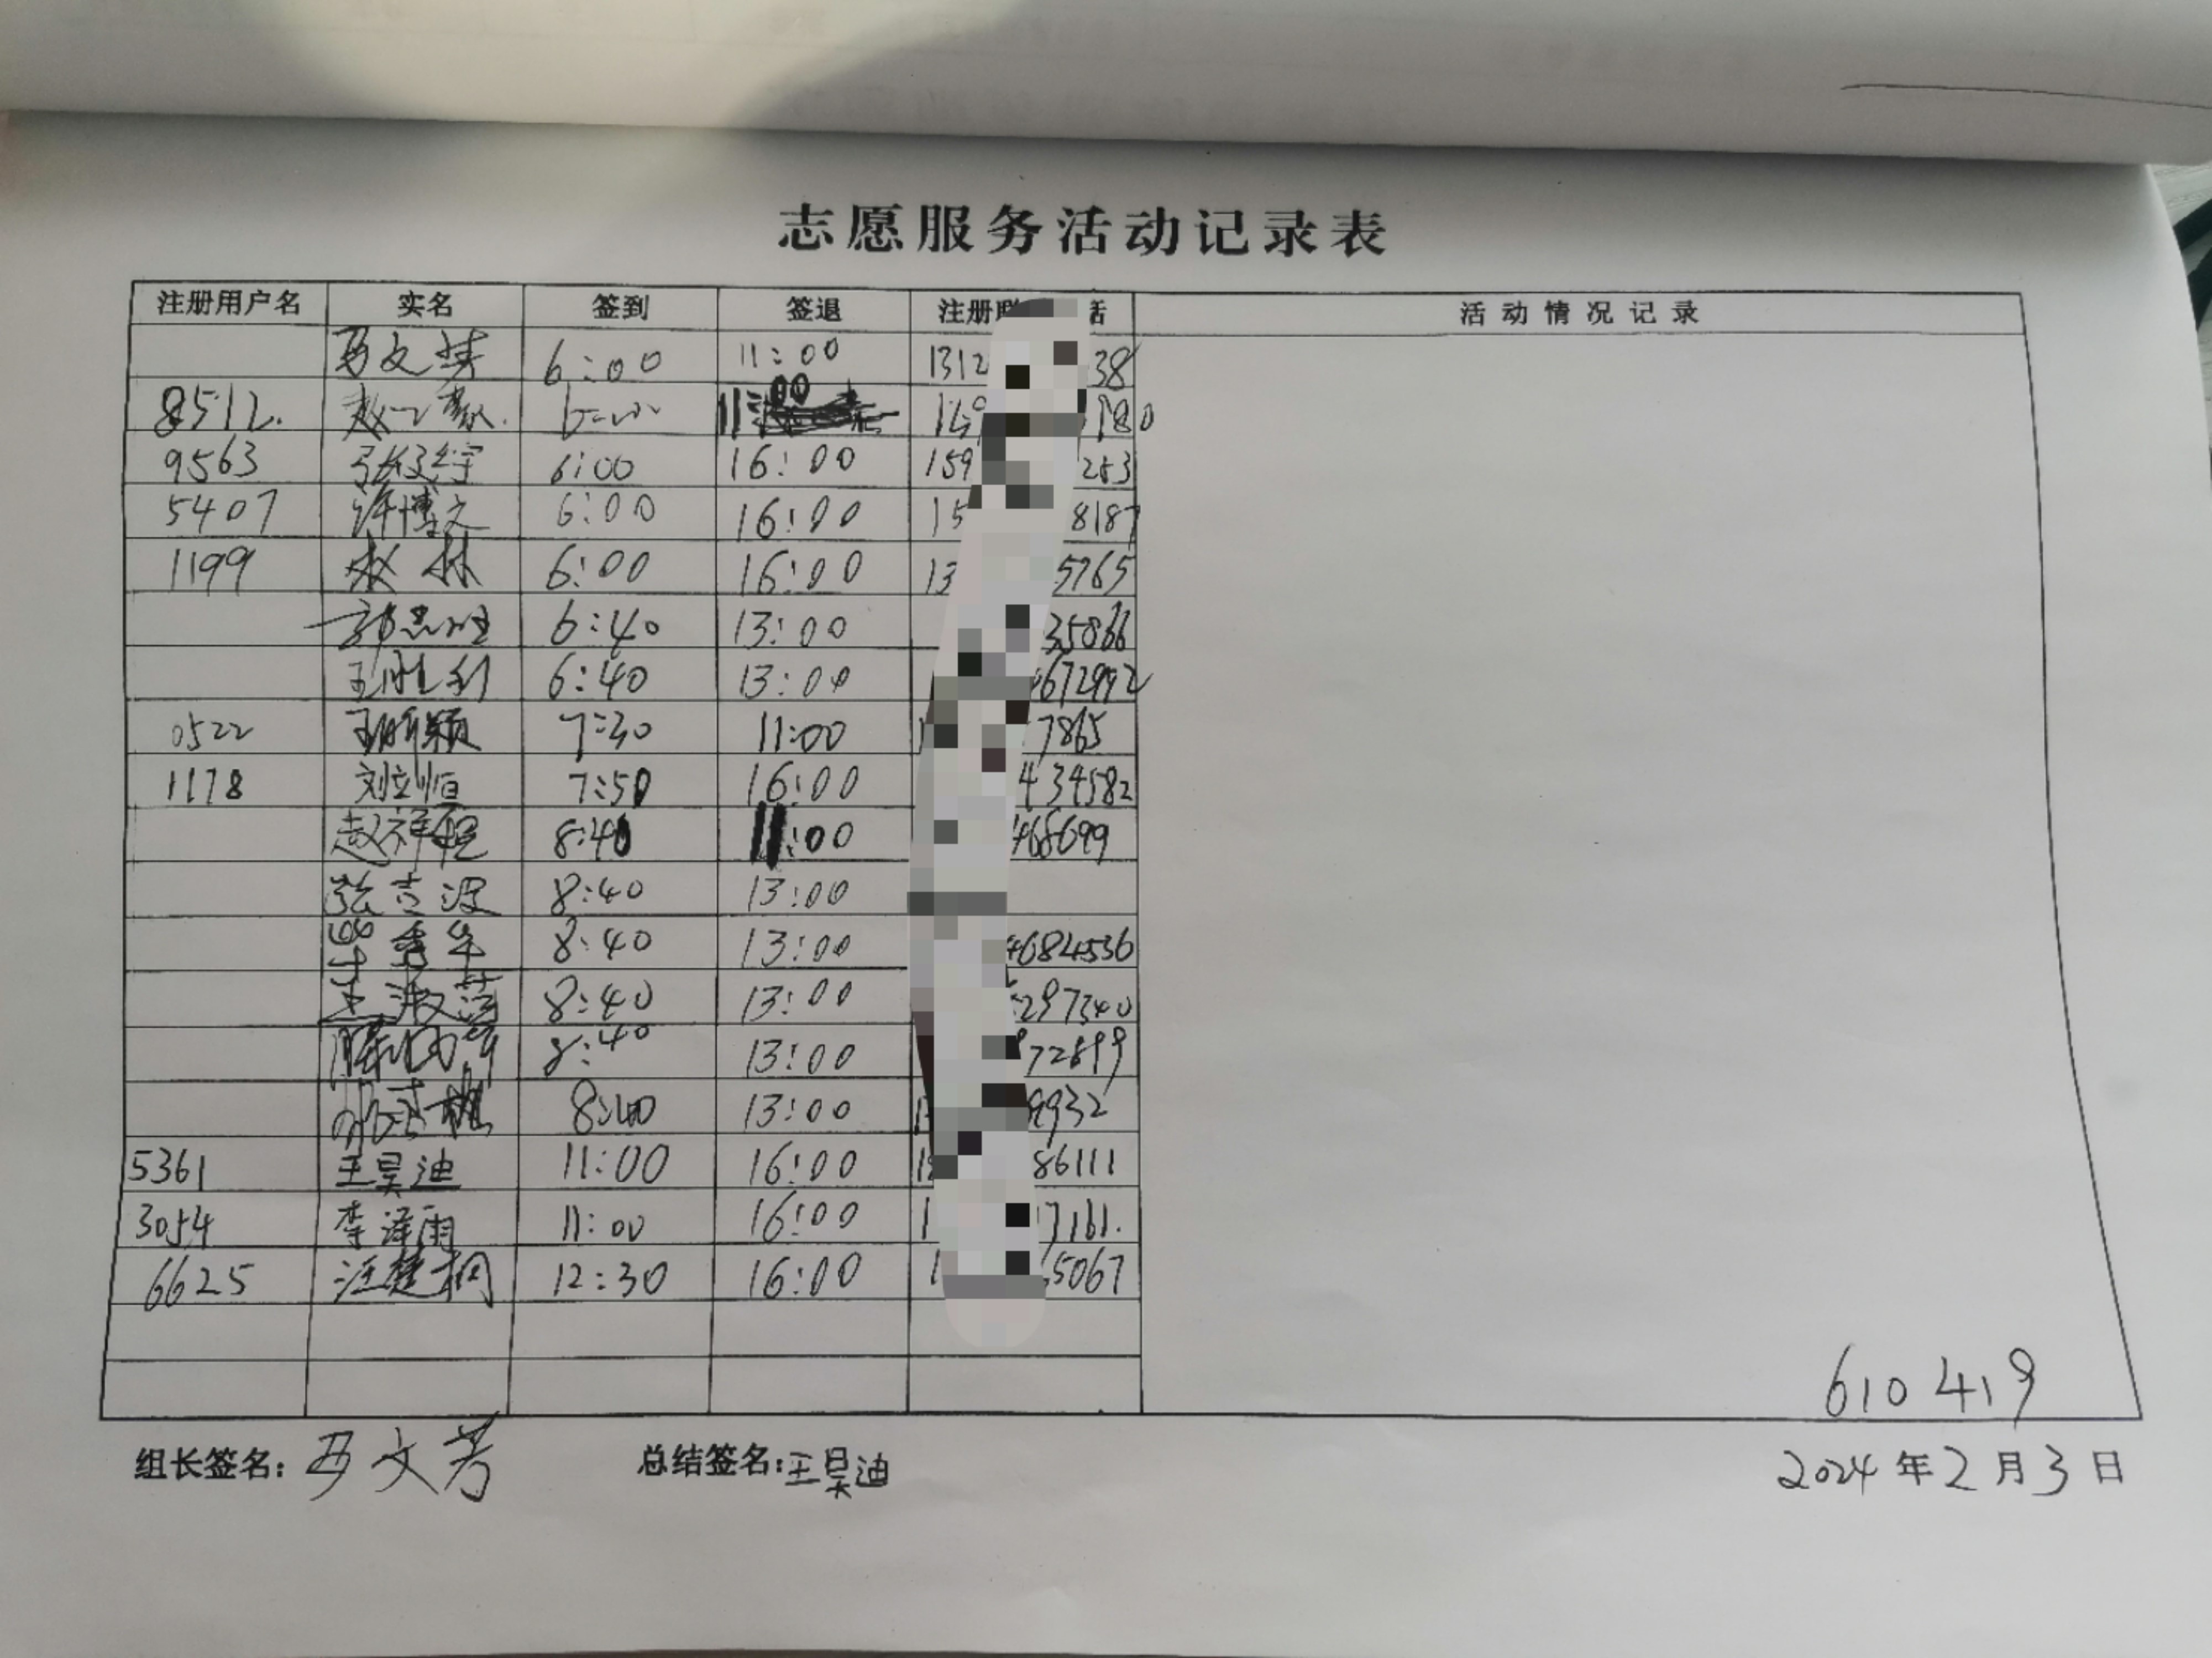 志愿服务活动记录表
注册用户名 实名 签到 签退 注册联 话 活动情况记录
6:00 11:00 1312 38
8512. 11:00 180
9563 6:00 16:00 159 253
5407 许博文 6:00 16:00 15 8187
1199 林 6:00 16:00 13 5765
6:40 13:00 35866
王胜利 6:40 13:00 672992
0522 7:30 11:00 7865
1178 刘立恒 7:50 16:00 434582
赵祥 8:40 11:00 468699
张吉波 8:40 13:00
8:40 13:00 4684536
王淑 8:40 13:00 297340
8:40 13:00 972899
8:40 13:00 9932
5361 王昊迪 11:00 16:00 86111
3054 李泽雨 11:00 16:00 1 7161.
6625 汪楚桐 12:30 16:00 1 65067
610419
组长签名: 文芳 总结签名:王昊迪 2024年2月3日